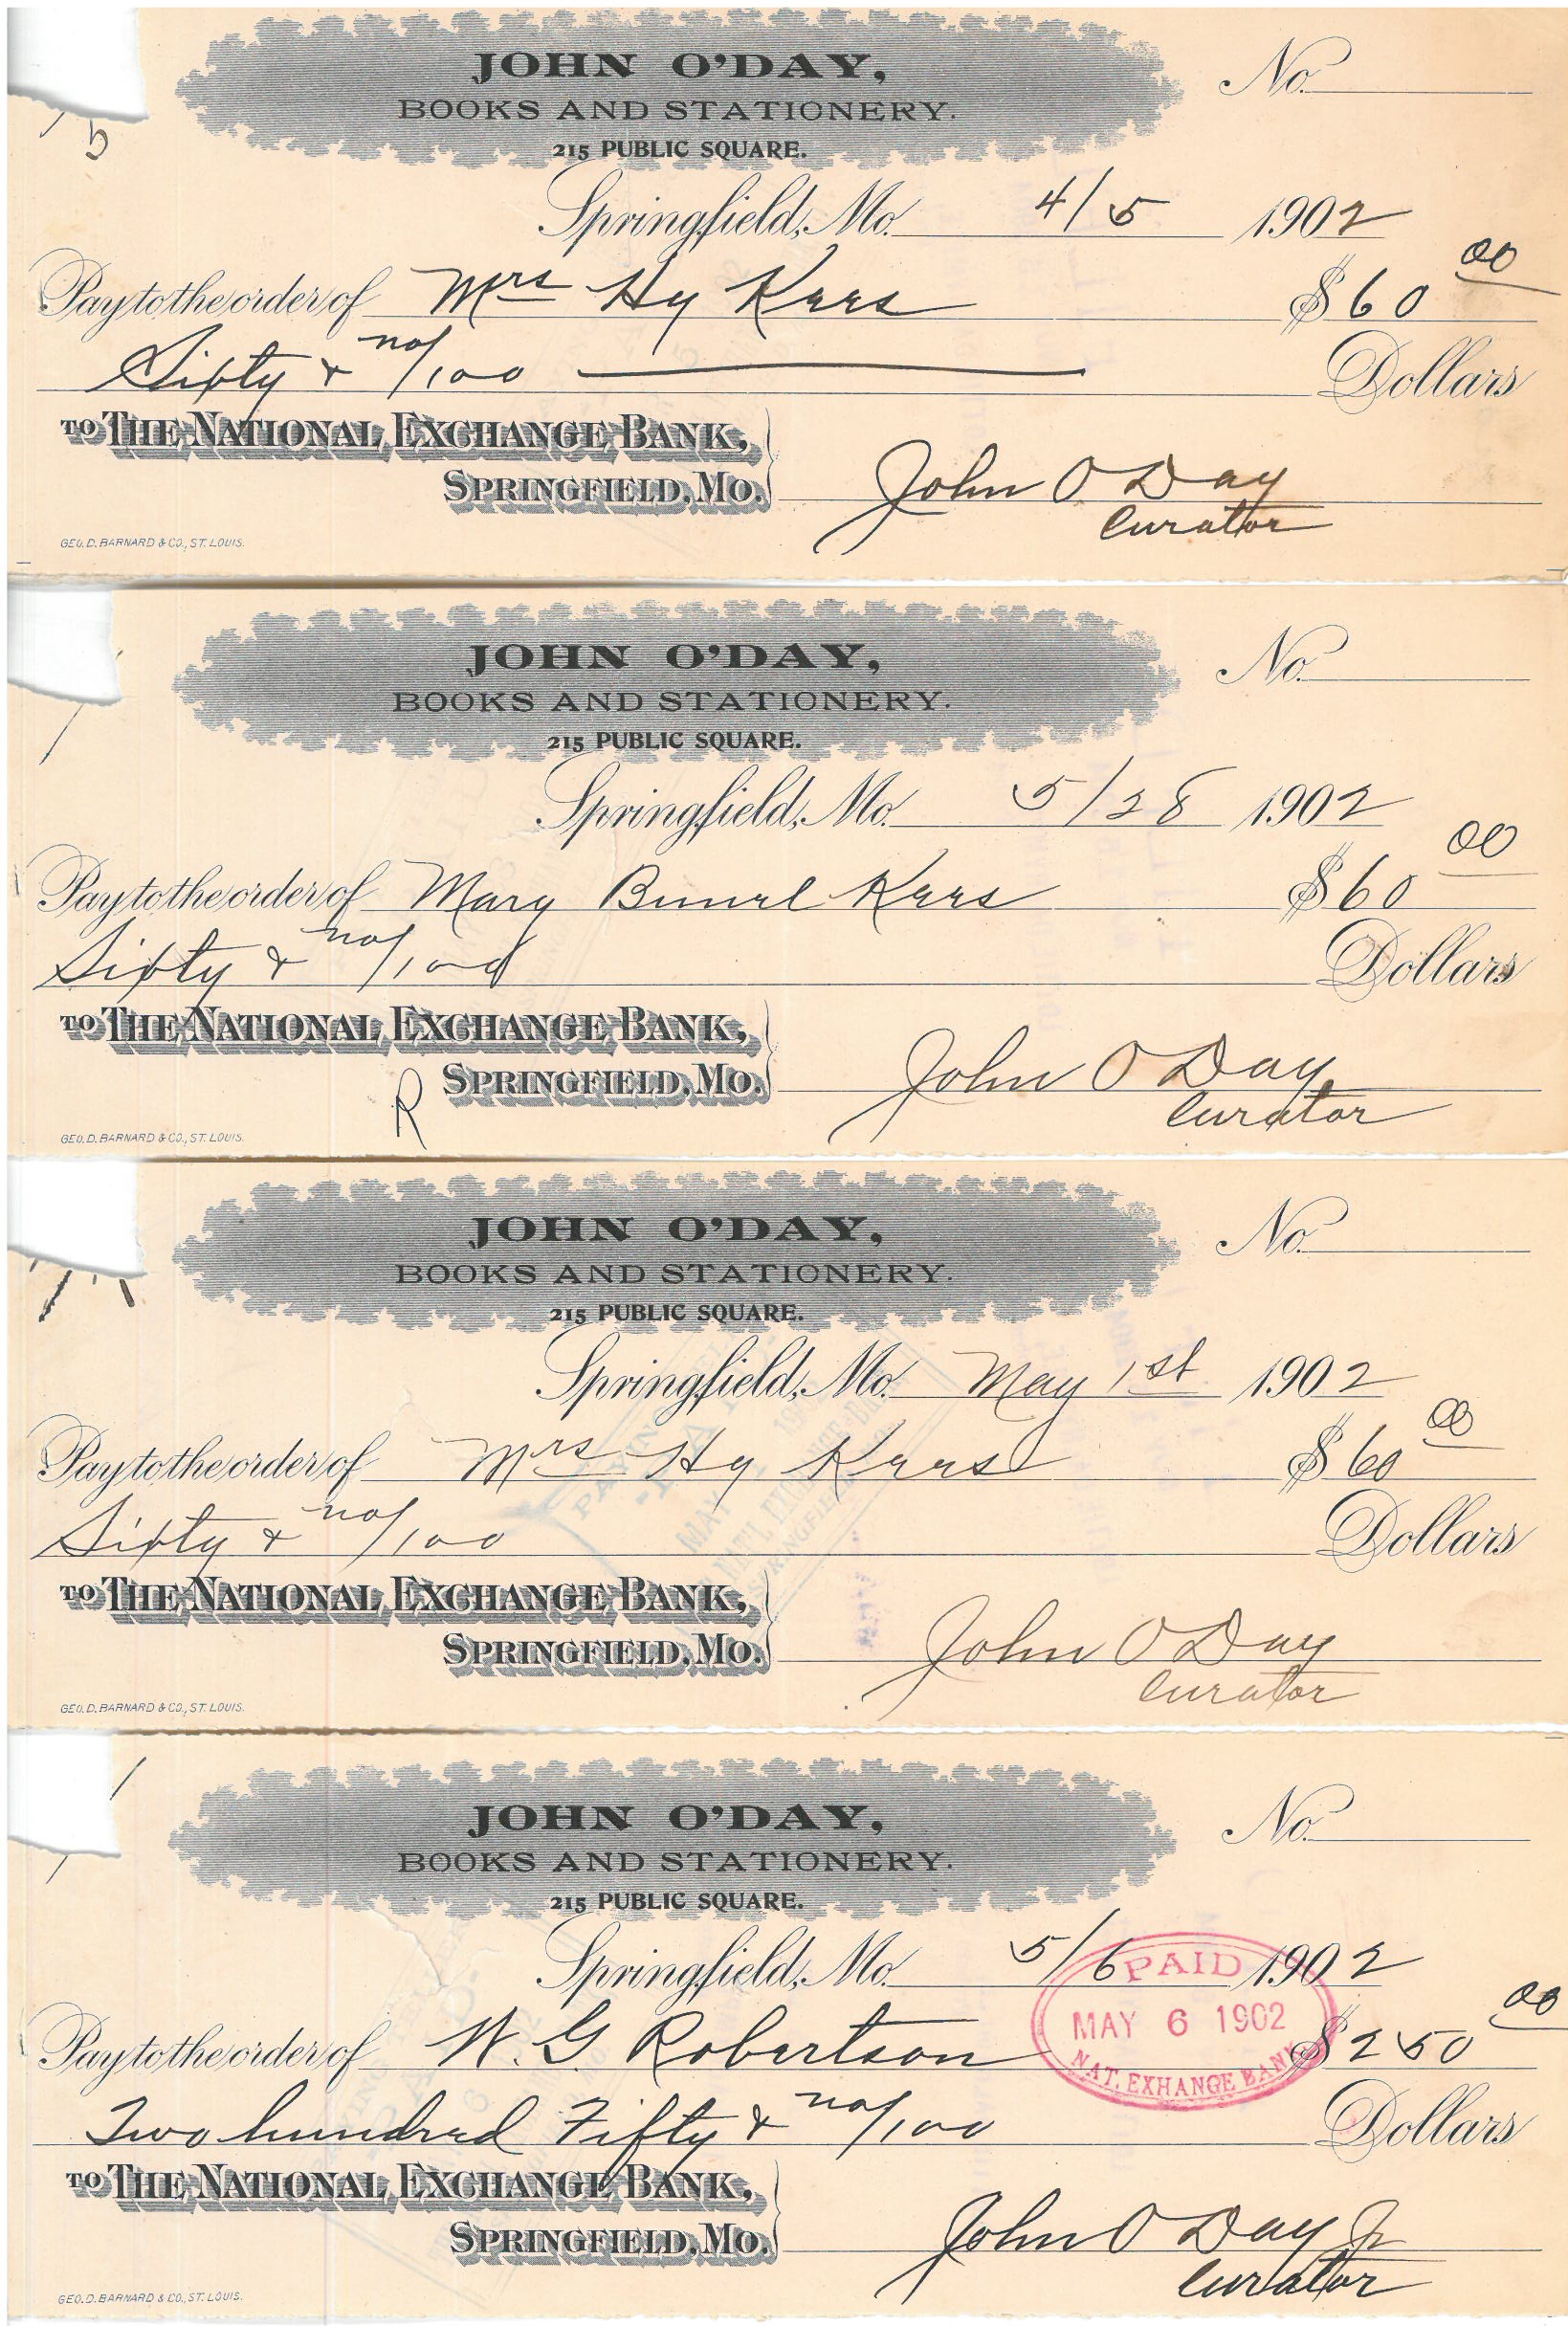 JOHN O'DAY,
BOOKS AND STATIONERY.
215 PUBLIC SQUARE.
No.
Springfield, Mo. 4/5 1902
Pay to the order of Mrs Hy Krrs $60 00
Sixty & no/100 Dollars
TO THE NATIONAL EXCHANGE BANK,
SPRINGFIELD, MO.
John O Day
Curator
GEO. D. BARNARD & CO., ST. LOUIS.
JOHN O'DAY,
BOOKS AND STATIONERY.
215 PUBLIC SQUARE.
No.
Springfield, Mo. 5/28 1902
Pay to the order of Mary $60 00
Sixty & no/100 Dollars
TO THE NATIONAL EXCHANGE BANK,
R SPRINGFIELD, MO.
John O Day
Curator
GEO. D. BARNARD & CO., ST. LOUIS.
JOHN O'DAY,
BOOKS AND STATIONERY.
215 PUBLIC SQUARE.
No.
Springfield, Mo. May 1st 1902
Pay to the order of Mrs Hy $60 00
Sixty & no/100 Dollars
TO THE NATIONAL EXCHANGE BANK,
SPRINGFIELD, MO.
John O Day
Curator
GEO. D. BARNARD & CO., ST. LOUIS.
JOHN O'DAY,
BOOKS AND STATIONERY.
215 PUBLIC SQUARE.
No.
Springfield, Mo. 5/6 1902
PAID
MAY 6 1902
NAT. EXHANGE BANK
Pay to the order of W. G Robertson $250 00
Two hundred Fifty & no/100 Dollars
TO THE NATIONAL EXCHANGE BANK,
SPRINGFIELD, MO.
John O Day Jr
Curator
GEO. D. BARNARD & CO., ST. LOUIS.